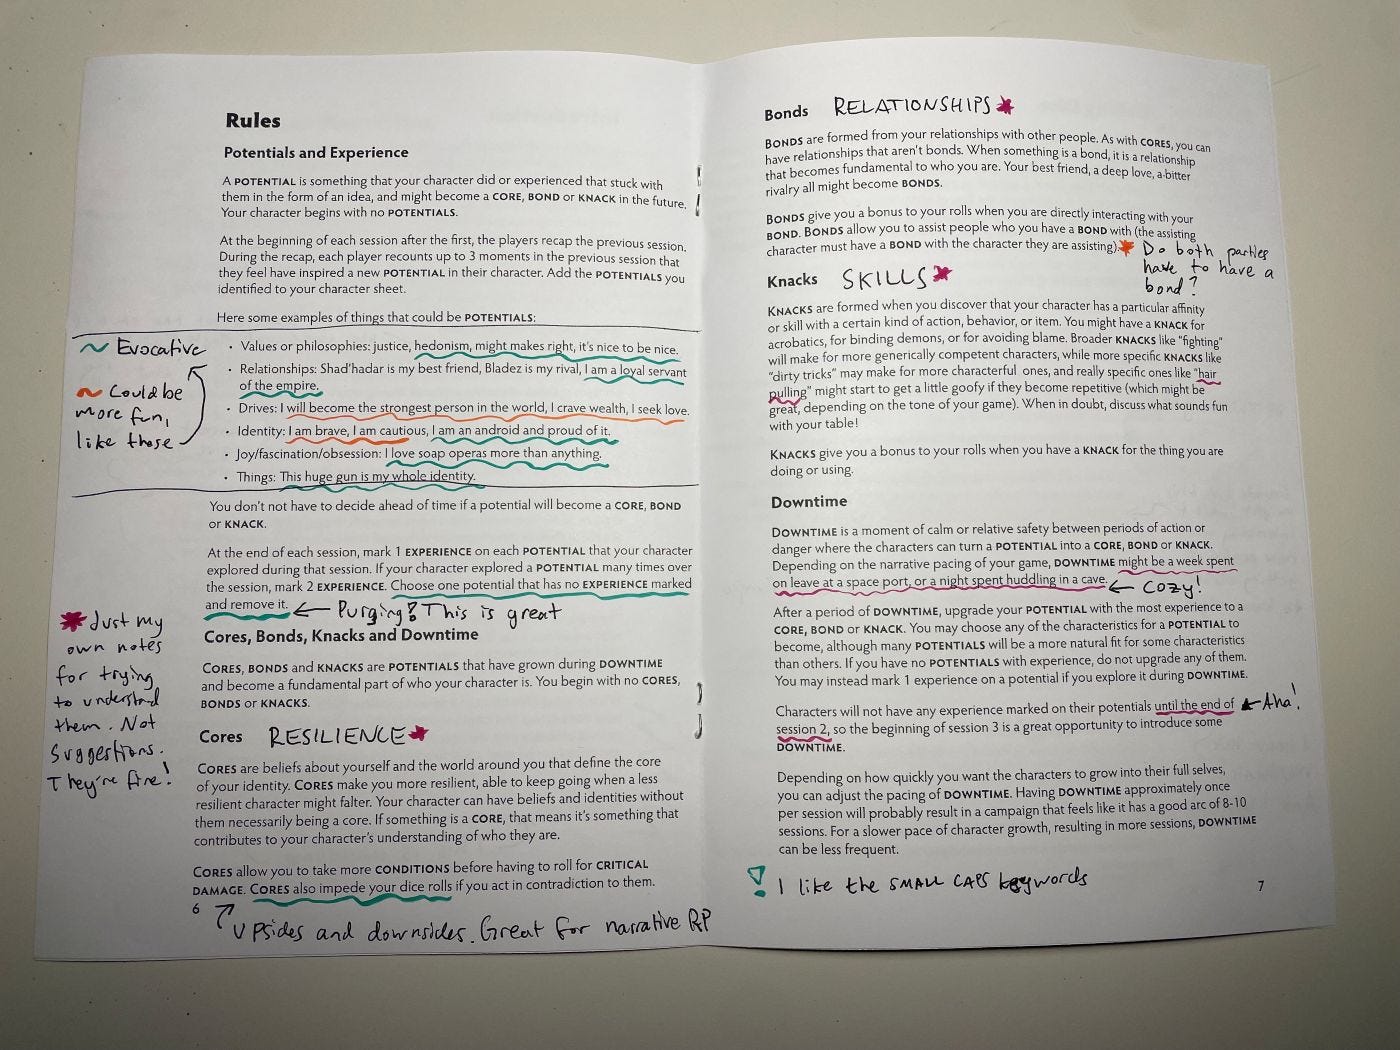 Rules
Potentials and Experience
A POTENTIAL is something that your character did or experienced that stuck with
them in the form of an idea, and might become a CORE, BOND or KNACK in the future.
Your character begins with no POTENTIALS.
At the beginning of each session after the first, the players recap the previous session.
During the recap, each player recounts up to 3 moments in the previous session that
they feel have inspired a new POTENTIAL in their character. Add the POTENTIALS you
identified to your character sheet.
Here some examples of things that could be POTENTIALS:
~ Evocative
~ Could be
more fun,
like those
• Values or philosophies: justice, hedonism, might makes right, it's nice to be nice.
• Relationships: Shad'hadar is my best friend, Bladez is my rival, I am a loyal servant
of the empire.
• Drives: I will become the strongest person in the world, I crave wealth, I seek love.
• Identity: I am brave, I am cautious, I am an android and proud of it.
• Joy/fascination/obsession: I love soap operas more than anything.
• Things: This huge gun is my whole identity.
You don't not have to decide ahead of time if a potential will become a CORE, BOND
or KNACK.
At the end of each session, mark 1 EXPERIENCE on each POTENTIAL that your character
explored during that session. If your character explored a POTENTIAL many times over
the session, mark 2 EXPERIENCE. Choose one potential that has no EXPERIENCE marked
and remove it. ← Purging? This is great
Cores, Bonds, Knacks and Downtime
CORES, BONDS and KNACKS are POTENTIALS that have grown during DOWNTIME
and become a fundamental part of who your character is. You begin with no CORES,
BONDS or KNACKS.
* Just my
own notes
for trying
to understand
them. Not
suggestions.
They're fine!
Cores RESILIENCE *
CORES are beliefs about yourself and the world around you that define the core
of your identity. CORES make you more resilient, able to keep going when a less
resilient character might falter. Your character can have beliefs and identities without
them necessarily being a core. If something is a CORE, that means it's something that
contributes to your character's understanding of who they are.
CORES allow you to take more CONDITIONS before having to roll for CRITICAL
DAMAGE. CORES also impede your dice rolls if you act in contradiction to them.
6
Upsides and downsides. Great for narrative RP
Bonds RELATIONSHIPS *
BONDS are formed from your relationships with other people. As with CORES, you can
have relationships that aren't bonds. When something is a bond, it is a relationship
that becomes fundamental to who you are. Your best friend, a deep love, a bitter
rivalry all might become BONDS.
BONDS give you a bonus to your rolls when you are directly interacting with your
BOND. BONDS allow you to assist people who you have a BOND with (the assisting
character must have a BOND with the character they are assisting). * Do both parties
have to have a
bond?
Knacks SKILLS *
KNACKS are formed when you discover that your character has a particular affinity
or skill with a certain kind of action, behavior, or item. You might have a KNACK for
acrobatics, for binding demons, or for avoiding blame. Broader KNACKS like "fighting"
will make for more generically competent characters, while more specific KNACKS like
"dirty tricks" may make for more characterful ones, and really specific ones like "hair
pulling" might start to get a little goofy if they become repetitive (which might be
great, depending on the tone of your game). When in doubt, discuss what sounds fun
with your table!
KNACKS give you a bonus to your rolls when you have a KNACK for the thing you are
doing or using.
Downtime
DOWNTIME is a moment of calm or relative safety between periods of action or
danger where the characters can turn a POTENTIAL into a CORE, BOND or KNACK.
Depending on the narrative pacing of your game, DOWNTIME might be a week spent
on leave at a space port, or a night spent huddling in a cave. ← Cozy!
After a period of DOWNTIME, upgrade your POTENTIAL with the most experience to a
CORE, BOND or KNACK. You may choose any of the characteristics for a POTENTIAL to
become, although many POTENTIALS will be a more natural fit for some characteristics
than others. If you have no POTENTIALS with experience, do not upgrade any of them.
You may instead mark 1 experience on a potential if you explore it during DOWNTIME.
Characters will not have any experience marked on their potentials until the end of ← Aha!
session 2, so the beginning of session 3 is a great opportunity to introduce some
DOWNTIME.
Depending on how quickly you want the characters to grow into their full selves,
you can adjust the pacing of DOWNTIME. Having DOWNTIME approximately once
per session will probably result in a campaign that feels like it has a good arc of 8-10
sessions. For a slower pace of character growth, resulting in more sessions, DOWNTIME
can be less frequent.
! I like the SMALL CAPS keywords
7